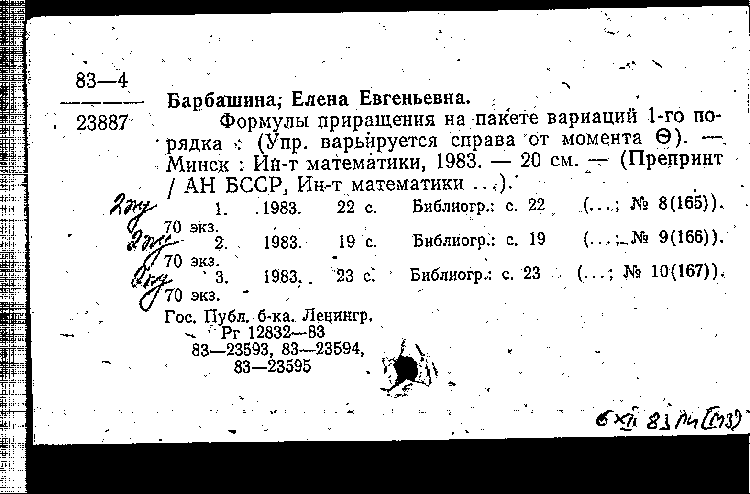 83—4
23887
Барбашина, Елена Евгеньевна.
Формулы приращения на пакете вариаций 1-го по-
рядка : (Упр. варьируется справа от момента Θ). —
Минск : Ин-т математики, 1983. — 20 см. — (Препринт
/ АН БССР, Ин-т математики ...).
2экз 1. 1983. 22 с. Библиогр.: с. 22 (...; № 8(165)).
70 экз.
2экз 2. 1983. 19 с. Библиогр.: с. 19 (...; № 9(166)).
70 экз.
3. 1983. 23 с. Библиогр.: с. 23 (...; № 10(167)).
70 экз.
Гос. Публ. б-ка. Ленингр.
Рг 12832—83
83—23593, 83—23594,
83—23595
6 XII 83